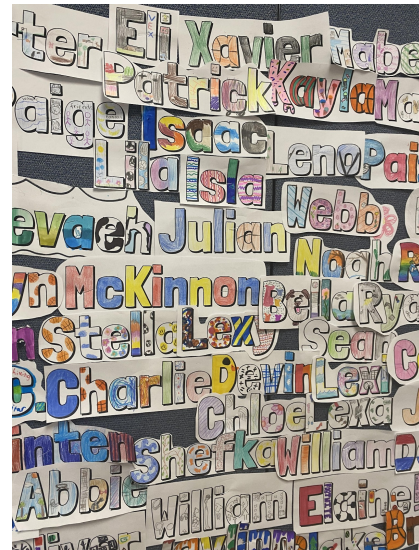 ter Eli Xavier Mabe
Patrick Kayla Ma
aige Isaac Leno Pai
Lila Isla Webb
evaeh Julian Noah
yn McKinnon Bella Rya
Stella Lexy Sea
C. Charlie Devin Lexi
Chloe Lexa
inter Shefka William
Abbie William